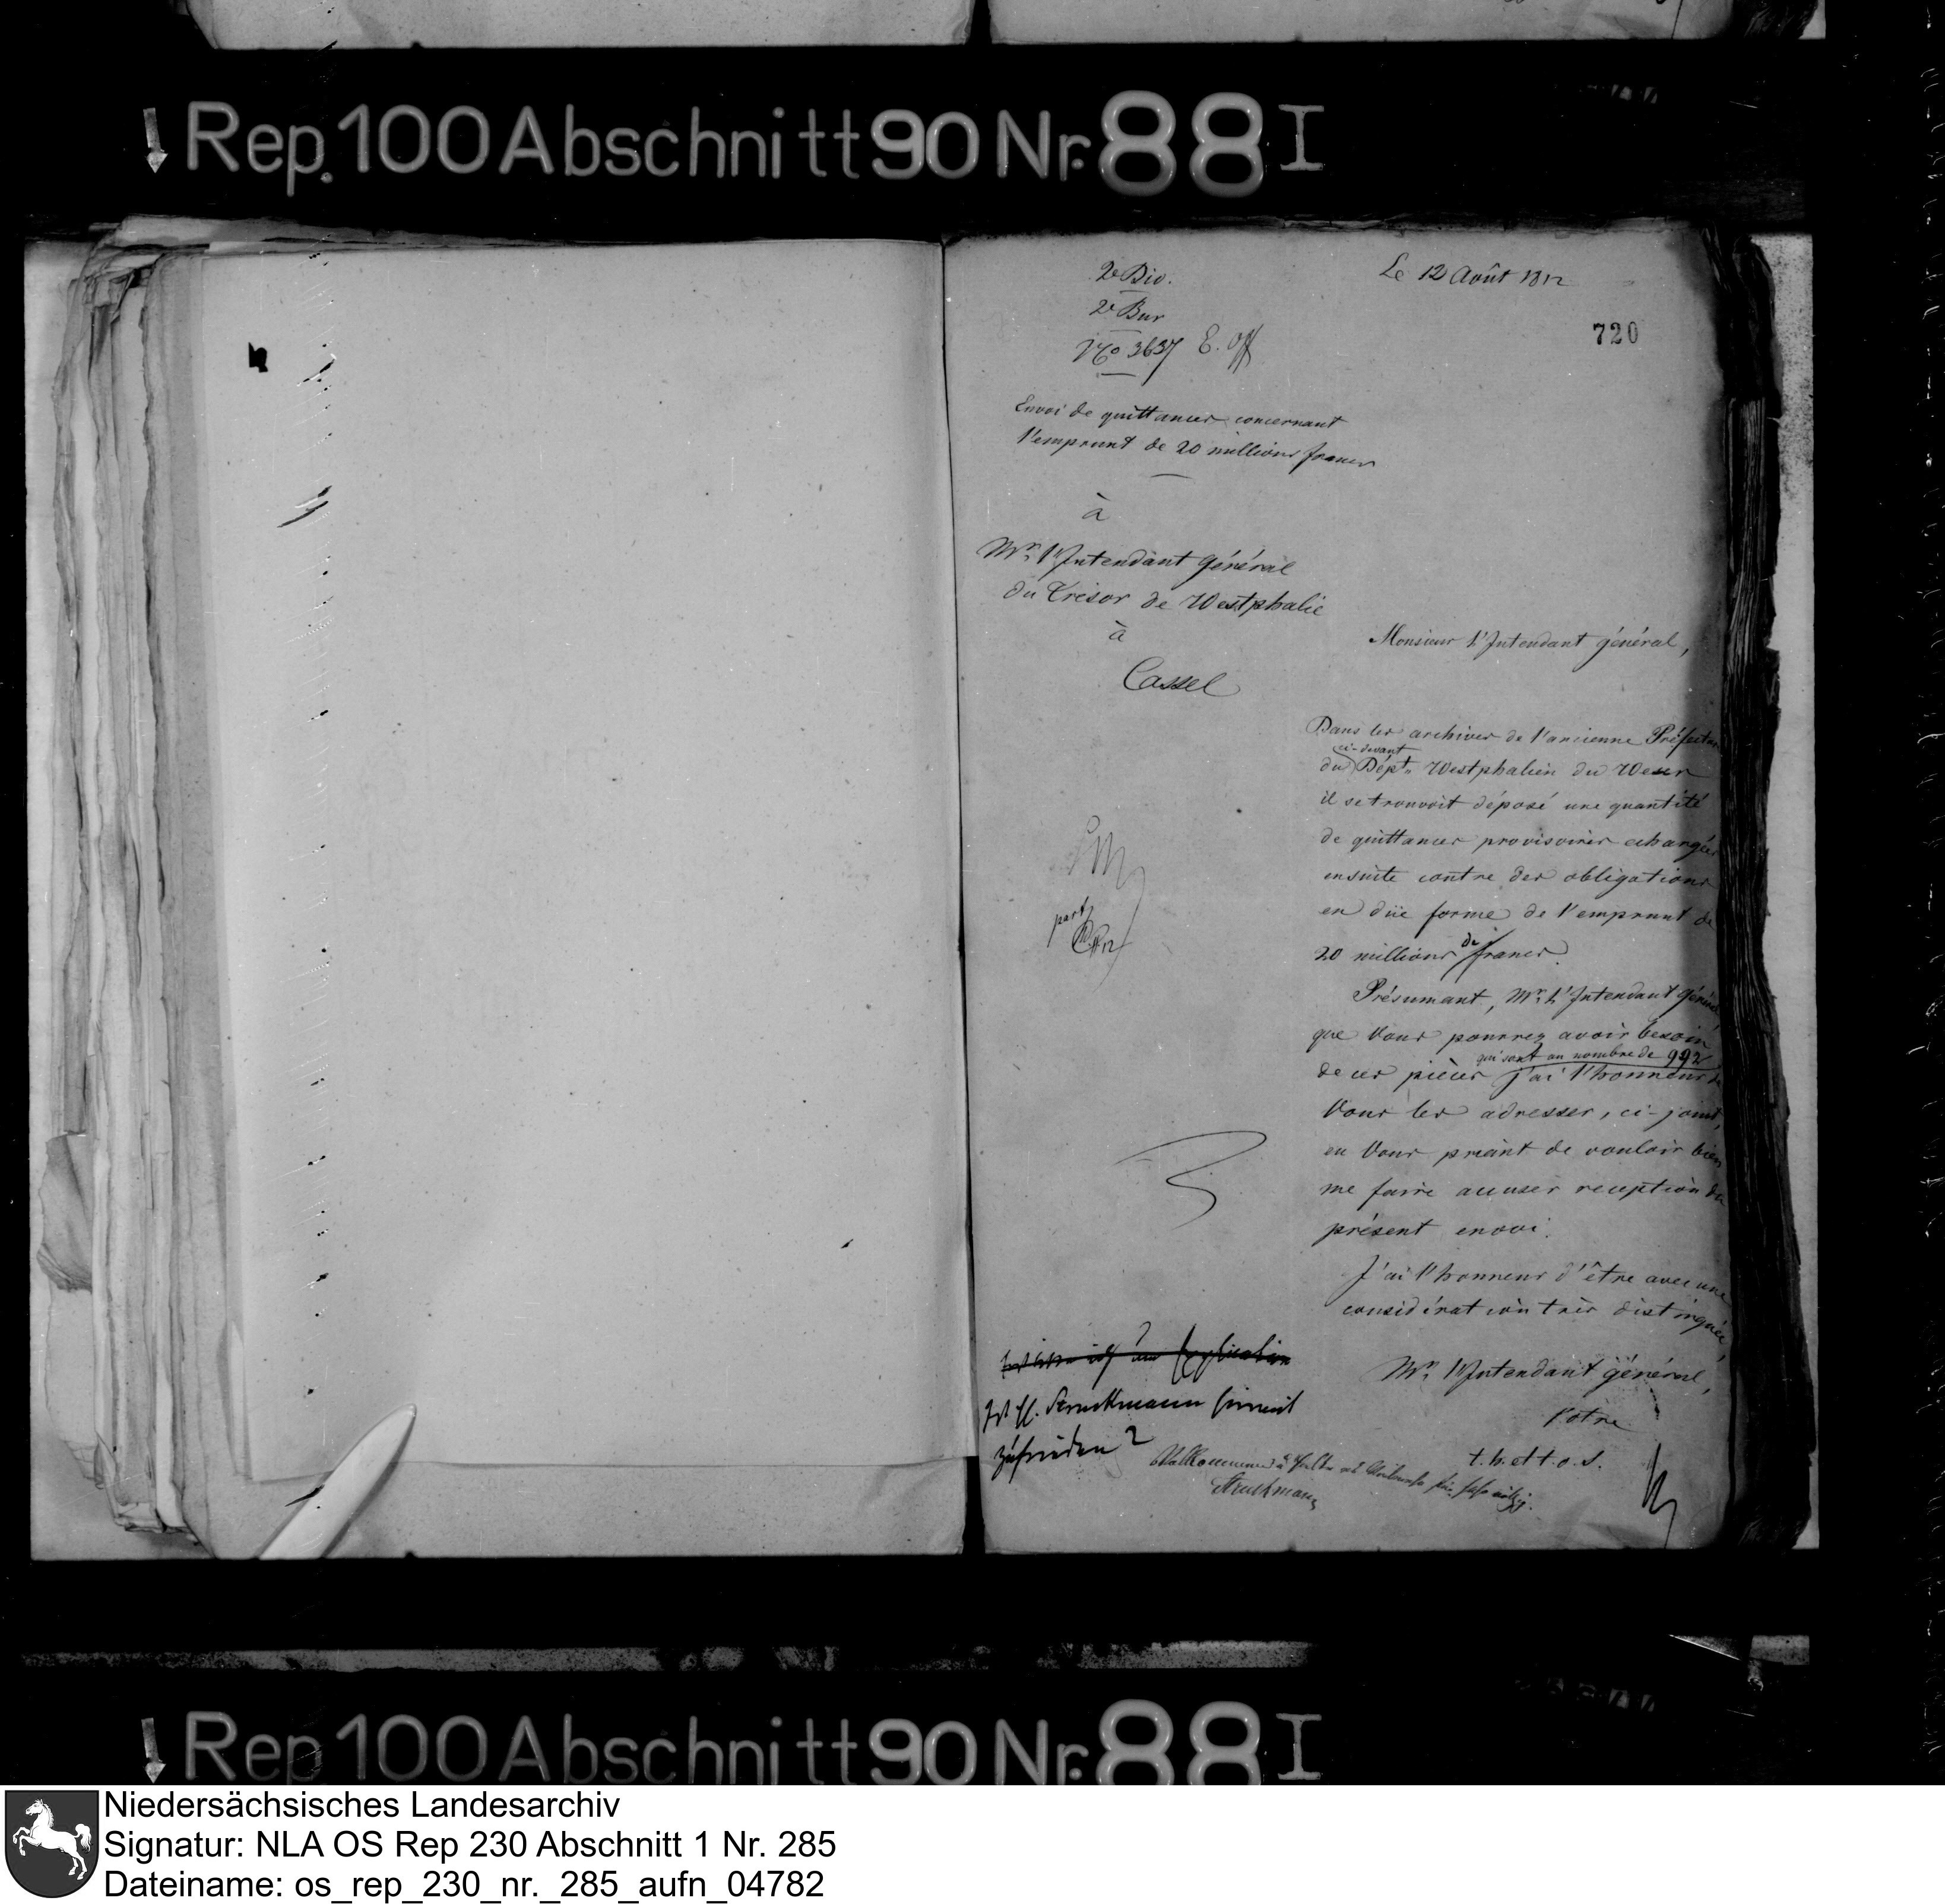 Rep. 100 Abschnitt 90 Nr. 88 I
2e Div.
2e Bur
No 3637 E. Off
Le 12 Août 1812
720
Envoi de quittances concernant
l'emprunt de 20 millions francs
à
Mr. l'Intendant général
du Trésor de Westphalie
à
Cassel
Monsieur l'Intendant général,
Dans les archives de l'ancienne Préfecture
ci-devant
du Dépt. Westphalien du Weser
il se trouvoit déposé une quantité
de quittances provisoires echangées
ensuite contre des obligations
en düe forme de l'emprunt de
20 millions de francs.
Présumant, Mr. l'Intendant général
que Vous pourrez avoir besoin
qui sont au nombre de 992
de ces pièces j'ai l'honneur de
Vous les adresser, ci-joint,
en Vous priant de vouloir bien
me faire accuser reception du
présent envoi.
J'ai l'honneur d'être avec une
considération très distinguée,
Mr. l'Intendant général,
Votre
t. h. et t. o. S.
part
Explication
Ist H. Struckmann hiermit
zufrieden?
Vollkommen
Struckmann
Rep 100 Abschnitt 90 Nr. 88 I
Niedersächsisches Landesarchiv
Signatur: NLA OS Rep 230 Abschnitt 1 Nr. 285
Dateiname: os_rep_230_nr._285_aufn_04782